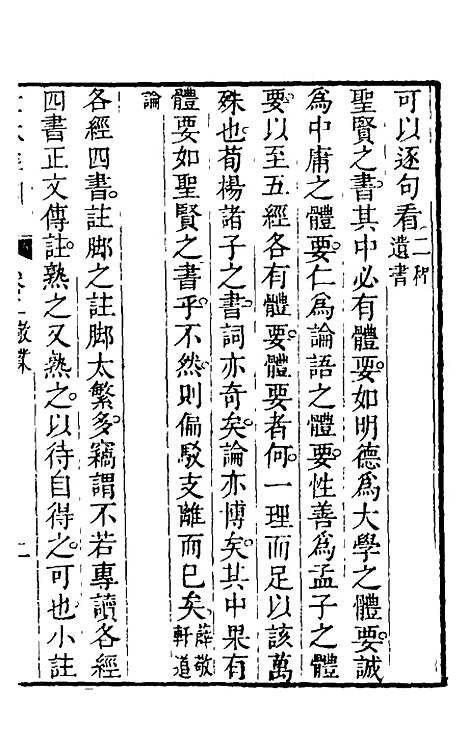 可以逐句看二程遺書
聖賢之書其中必有體要如明德爲大學之體要誠
爲中庸之體要仁爲論語之體要性善爲孟子之體
要以至五經各有體要體要者何一理而足以該萬
殊也荀楊諸子之書詞亦奇矣論亦博矣其中果有
體要如聖賢之書乎不然則偏駁支離而已矣薛敬軒道
論
各經四書註脚之註脚太繁多竊謂不若專讀各經
四書正文傳註熟之又熟之以待自得之可也小註